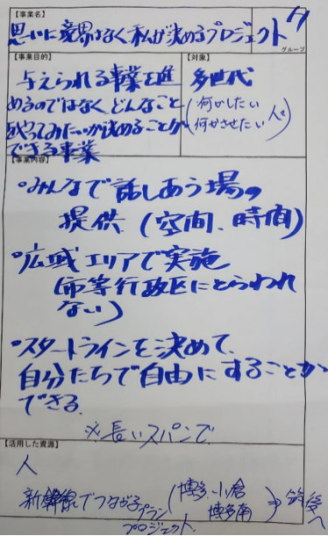 【事業名】
思いに境界はなく私が決めるプロジェクト
グループ
【事業目的】
与えられる事業を進
めるのではなく、どんなこと
をやってみたいか決めることが
できる事業
【対象】
多世代
(何かしたい
何かさせたい 人を)
【事業内容】
・みんなで話しあう場の
提供 (空間、時間)
・広域エリアで実施
(市等行政区にとらわれ
ない)
・スタートラインを決めて、
自分たちで自由にすることが
できる。
※長いスパンで
【活用した資源】
人
新幹線でつながるプラン (博多-小倉
博多南)
プロジェクト